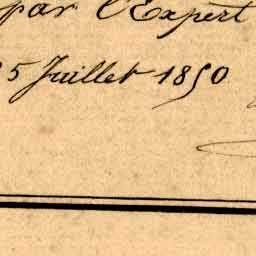 par l'Expert
5 Juillet 1850